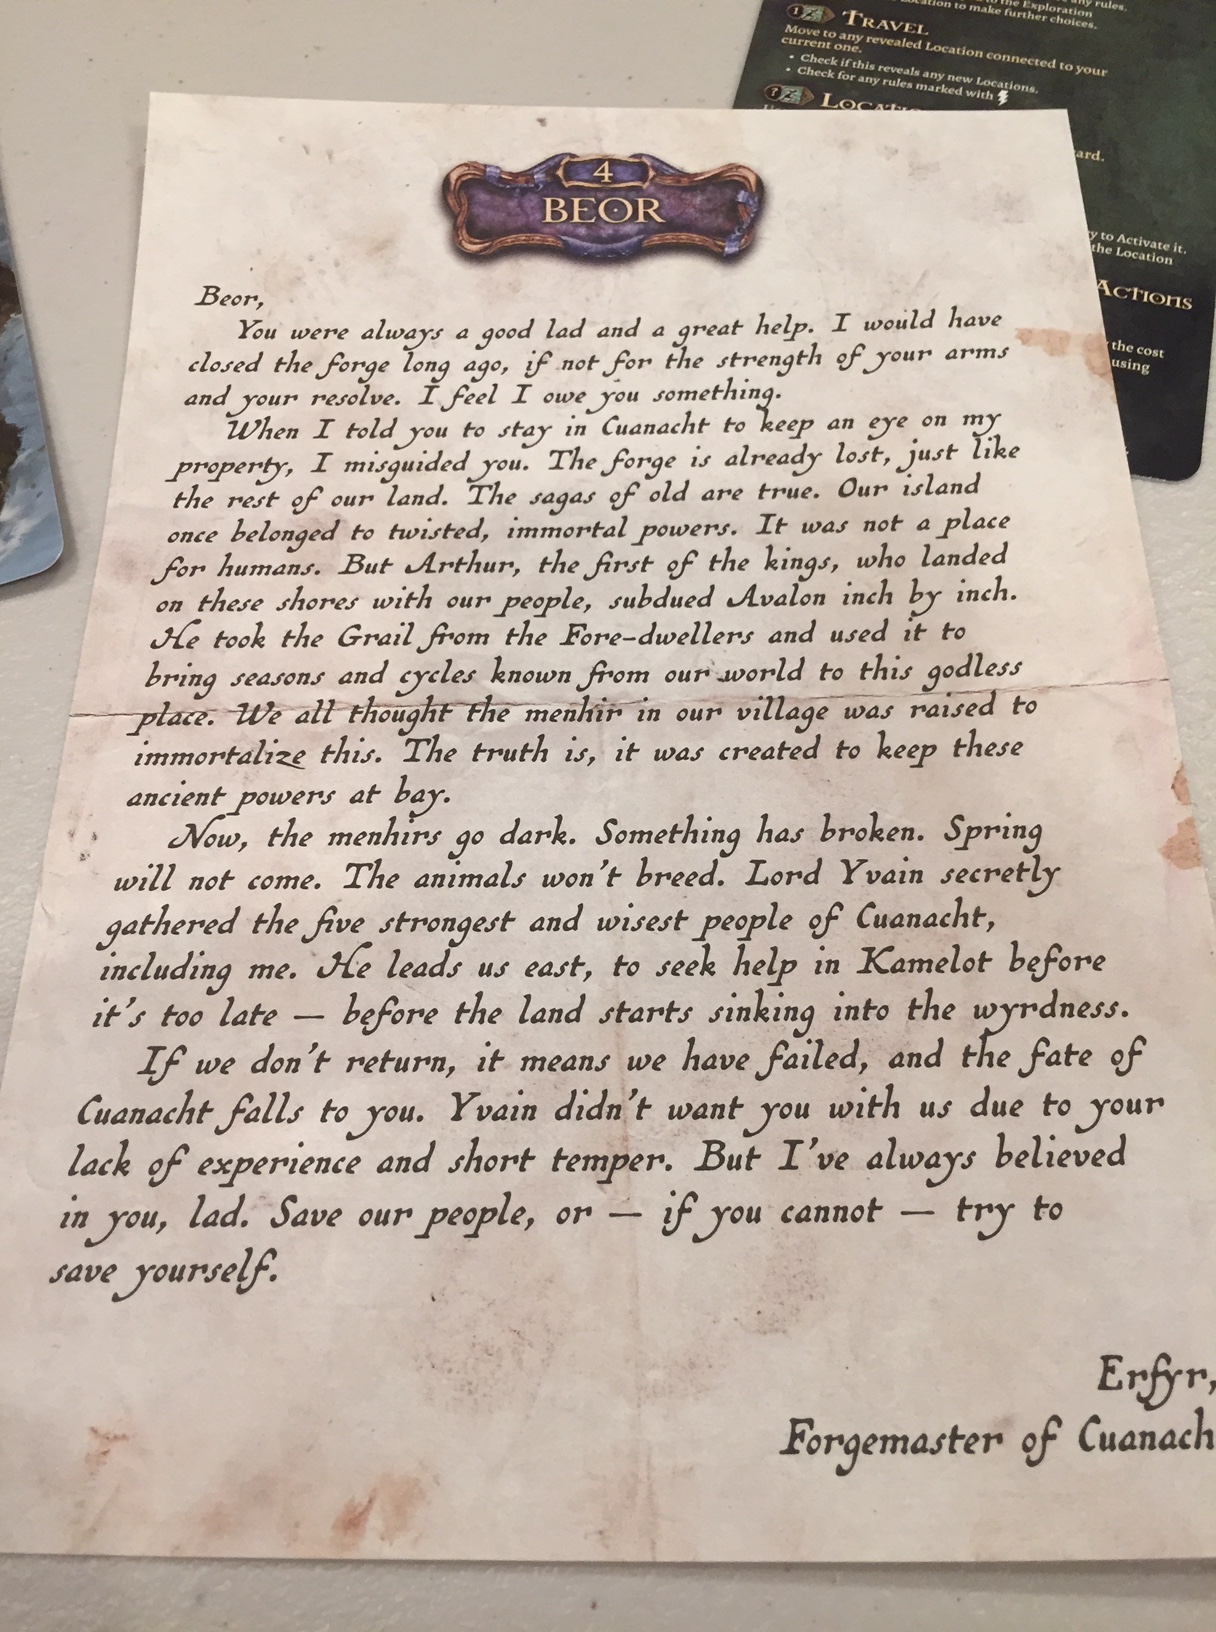 any rules.
to the Exploration
Location to make further choices.
TRAVEL
Move to any revealed Location connected to your
current one.
• Check if this reveals any new Locations.
• Check for any rules marked with
ard.
y to Activate it.
the Location
ACTIONS
the cost
using
4
BEOR
Beor,
You were always a good lad and a great help. I would have
closed the forge long ago, if not for the strength of your arms
and your resolve. I feel I owe you something.
When I told you to stay in Cuanacht to keep an eye on my
property, I misguided you. The forge is already lost, just like
the rest of our land. The sagas of old are true. Our island
once belonged to twisted, immortal powers. It was not a place
for humans. But Arthur, the first of the kings, who landed
on these shores with our people, subdued Avalon inch by inch.
He took the Grail from the Fore-dwellers and used it to
bring seasons and cycles known from our world to this godless
place. We all thought the menhir in our village was raised to
immortalize this. The truth is, it was created to keep these
ancient powers at bay.
Now, the menhirs go dark. Something has broken. Spring
will not come. The animals won't breed. Lord Yvain secretly
gathered the five strongest and wisest people of Cuanacht,
including me. He leads us east, to seek help in Kamelot before
it's too late — before the land starts sinking into the wyrdness.
If we don't return, it means we have failed, and the fate of
Cuanacht falls to you. Yvain didn't want you with us due to your
lack of experience and short temper. But I've always believed
in you, lad. Save our people, or — if you cannot — try to
save yourself.
Erfyr,
Forgemaster of Cuanach